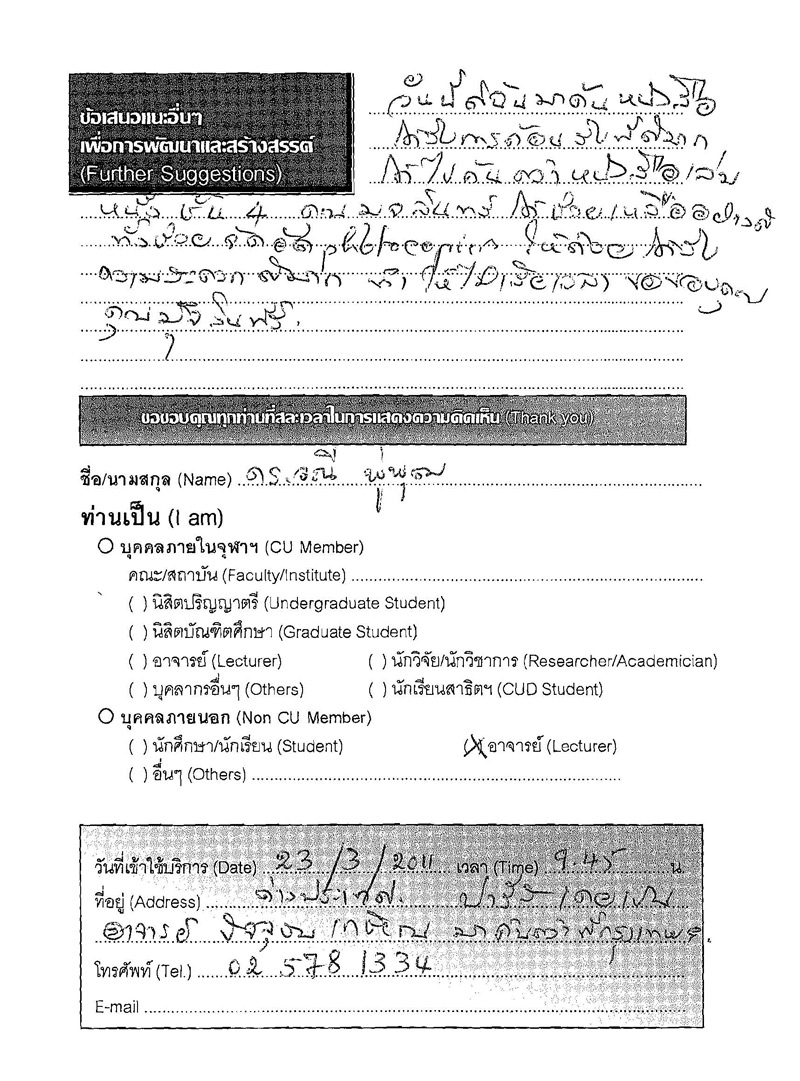 ข้อเสนอแนะอื่นๆ
เพื่อการพัฒนาและสร้างสรรค์
(Further Suggestions)
วันนี้ดิฉันมาค้นหนังสือ
ได้รับการต้อนรับที่ดีมาก
ได้ไปค้นคว้าหนังสือเล่ม
หนึ่ง ชั้น 4 คุณ ได้ช่วยเหลืออย่างดี
ทั้งช่วย photocopies ให้ด้วย ได้รับ
ความสะดวกดีมาก ทำให้ไม่เสียเวลา ขอขอบคุณ
คุณ
ขอขอบคุณทุกท่านที่สละเวลาในการแสดงความคิดเห็น (Thank you)
ชื่อ/นามสกุล (Name) ดร.
ท่านเป็น (I am)
บุคคลภายในจุฬาฯ (CU Member)
คณะ/สถาบัน (Faculty/Institute)
( ) นิสิตปริญญาตรี (Undergraduate Student)
( ) นิสิตบัณฑิตศึกษา (Graduate Student)
( ) อาจารย์ (Lecturer) ( ) นักวิจัย/นักวิชาการ (Researcher/Academician)
( ) บุคลากรอื่นๆ (Others) ( ) นักเรียนสาธิตฯ (CUD Student)
บุคคลภายนอก (Non CU Member)
( ) นักศึกษา/นักเรียน (Student) (X) อาจารย์ (Lecturer)
( ) อื่นๆ (Others)
วันที่เข้าใช้บริการ (Date) 23/3/2011 เวลา (Time) 9.45 น.
ที่อยู่ (Address) ต่างประเทศ. ปารีส เคยเป็น
อาจารย์ ปัจจุบันเกษียณ มาค้นคว้าที่กรุงเทพฯ.
โทรศัพท์ (Tel.) 02 578 1334
E-mail